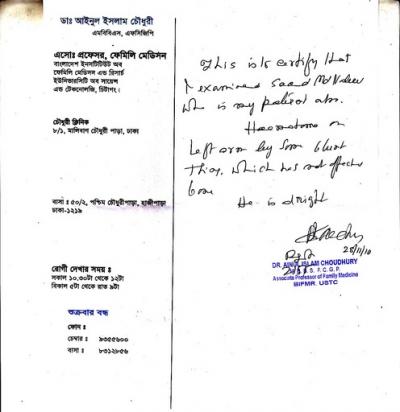 ডাঃ আইনুল ইসলাম চৌধুরী
এমবিবিএস, এফসিজিপি
এসোঃ প্রফেসর, ফেমিলি মেডিসন
বাংলাদেশ ইনসটিটিউট অব
ফেমিলি মেডিসন এন্ড রিসার্চ
ইউনিভারসিটি অব সায়েন্স
এন্ড টেকনোলজি, চিটাগং।
চৌধুরী ক্লিনিক
৮/১, মালিবাগ চৌধুরী পাড়া, ঢাকা
বাসা : ৫০/২, পশ্চিম চৌধুরীপাড়া, হাজীপাড়া
ঢাকা-১২১৯
রোগী দেখার সময় :
সকাল ১০.৩০টা থেকে ১২টা
বিকাল ৫টা থেকে রাত ৯টা
শুক্রবার বন্ধ
ফোন :
চেম্বার : ৯৩৫৫৬০০
বাসা : ৮৩১২৮৫৬
This is to certify that
I examined Saad Md
who is my patient
Haematoma on
Left arm by some blunt
thing, which has not effected
bone
He is alright
28/11/10
DR. AINUL ISLAM CHOUDHURY
M.B.B.S. F.C.G.P.
Associate Professor of Family Medicine
BIFMR. USTC